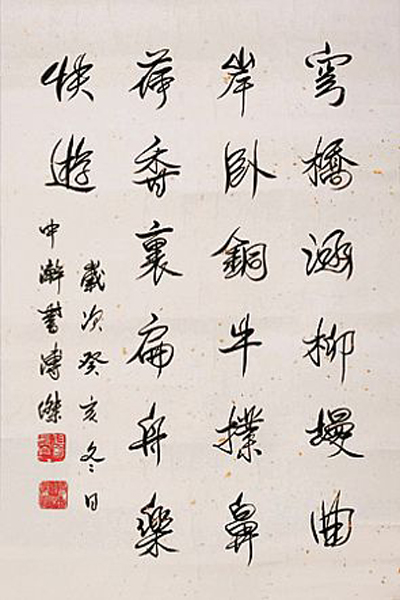 穹橋涵柳幔曲
岸臥銅牛撲鼻
荷香裏扁舟樂
快遊
歲次癸亥冬日
中澣書溥傑